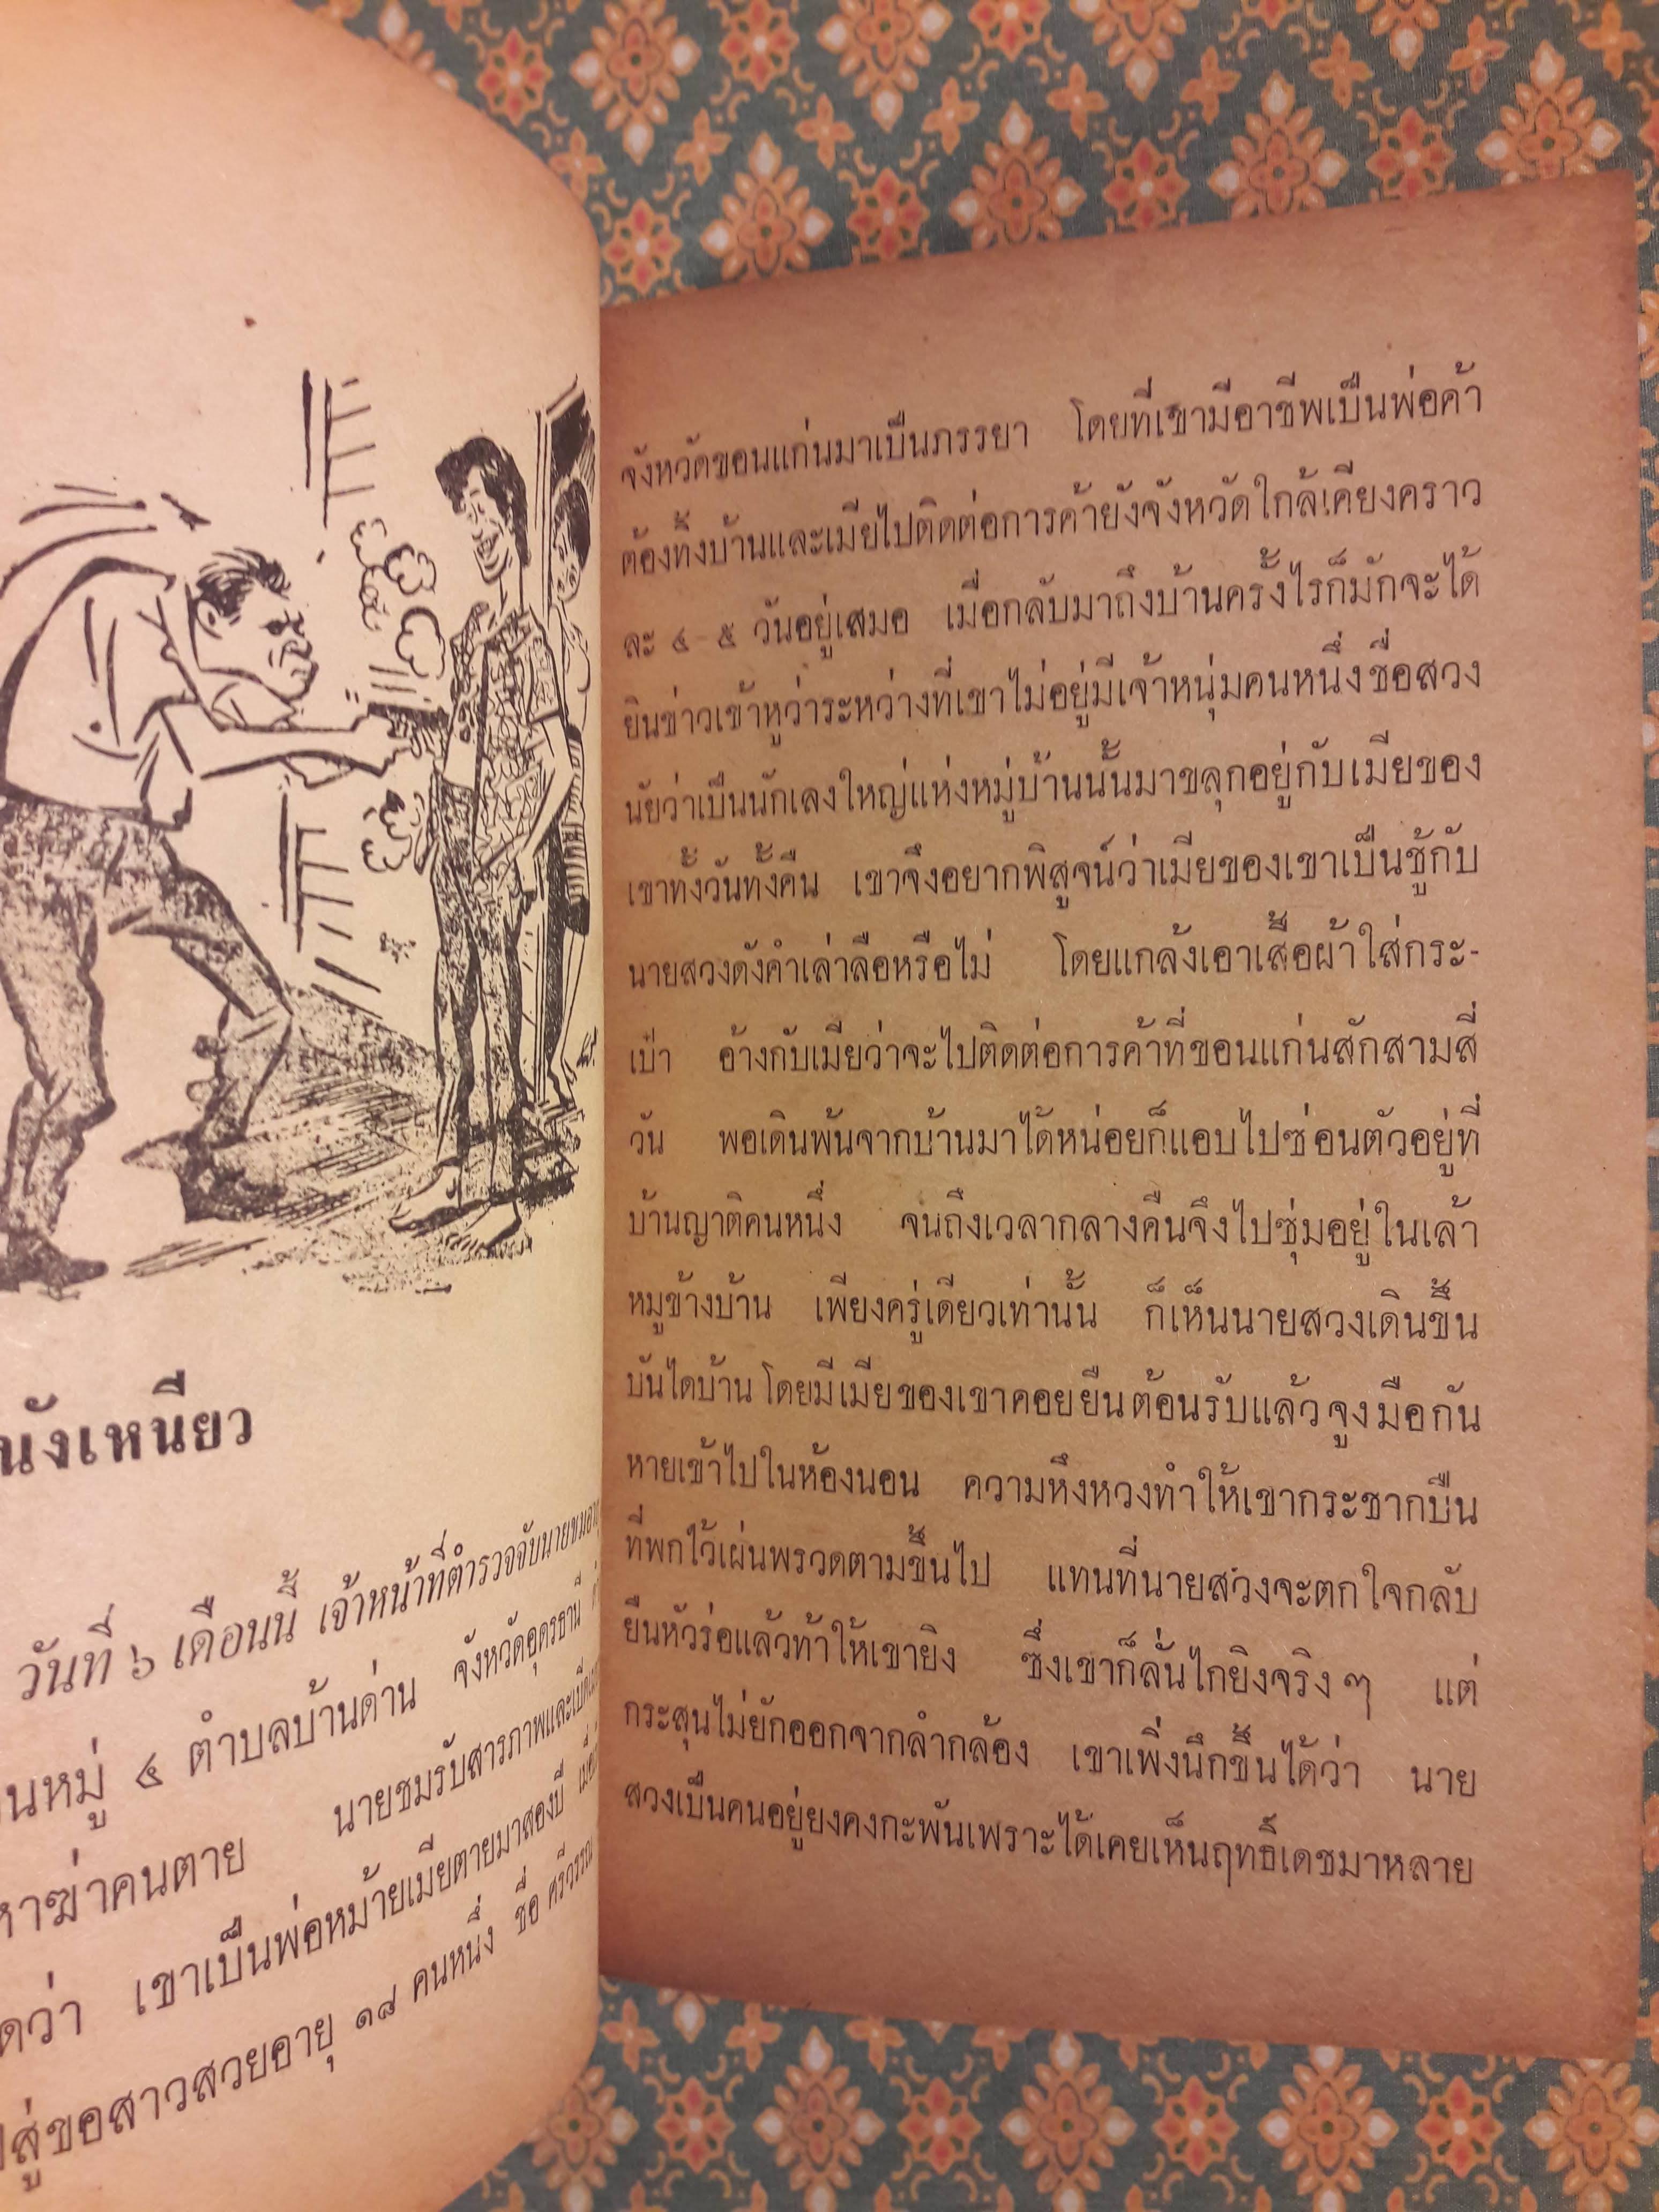 นังเหนียว
วันที่ ๖ เดือนนี้ เจ้าหน้าที่ตำรวจจับนายชม
นหมู่ ๔ ตำบลบ้านด่าน จังหวัดอุดรธานี
หาฆ่าคนตาย นายชมรับสารภาพและเปิดเผย
ดว่า เขาเป็นพ่อหม้ายเมียตายมาสองปี
สู่ขอสาวสวยอายุ ๑๘ คนหนึ่ง ชื่อ ศรีวรรณ
จังหวัดขอนแก่นมาเป็นภรรยา โดยที่เขามีอาชีพเป็นพ่อค้า
ต้องทิ้งบ้านและเมียไปติดต่อการค้ายังจังหวัดใกล้เคียงคราว
ละ ๔-๕ วันอยู่เสมอ เมื่อกลับมาถึงบ้านครั้งไรก็มักจะได้
ยินข่าวเข้าหูว่าระหว่างที่เขาไม่อยู่มีเจ้าหนุ่มคนหนึ่งชื่อสวง
นัยว่าเป็นนักเลงใหญ่แห่งหมู่บ้านนั้นมาขลุกอยู่กับเมียของ
เขาทั้งวันทั้งคืน เขาจึงอยากพิสูจน์ว่าเมียของเขาเป็นชู้กับ
นายสวงดังคำเล่าลือหรือไม่ โดยแกล้งเอาเสื้อผ้าใส่กระ-
เป๋า อ้างกับเมียว่าจะไปติดต่อการค้าที่ขอนแก่นสักสามสี่
วัน พอเดินพ้นจากบ้านมาได้หน่อยก็แอบไปซ่อนตัวอยู่ที่
บ้านญาติคนหนึ่ง จนถึงเวลากลางคืนจึงไปซุ่มอยู่ในเล้า
หมูข้างบ้าน เพียงครู่เดียวเท่านั้น ก็เห็นนายสวงเดินขึ้น
บันไดบ้านโดยมีเมียของเขาคอยยืนต้อนรับแล้วจูงมือกัน
หายเข้าไปในห้องนอน ความหึงหวงทำให้เขากระชากปืน
ที่พกไว้เผ่นพรวดตามขึ้นไป แทนที่นายสวงจะตกใจกลับ
ยืนหัวร่อแล้วท้าให้เขายิง ซึ่งเขาก็ลั่นไกยิงจริง ๆ แต่
กระสุนไม่ยักออกจากลำกล้อง เขาเพิ่งนึกขึ้นได้ว่า นาย
สวงเป็นคนอยู่ยงคงกะพันเพราะได้เคยเห็นฤทธิ์เดชมาหลาย